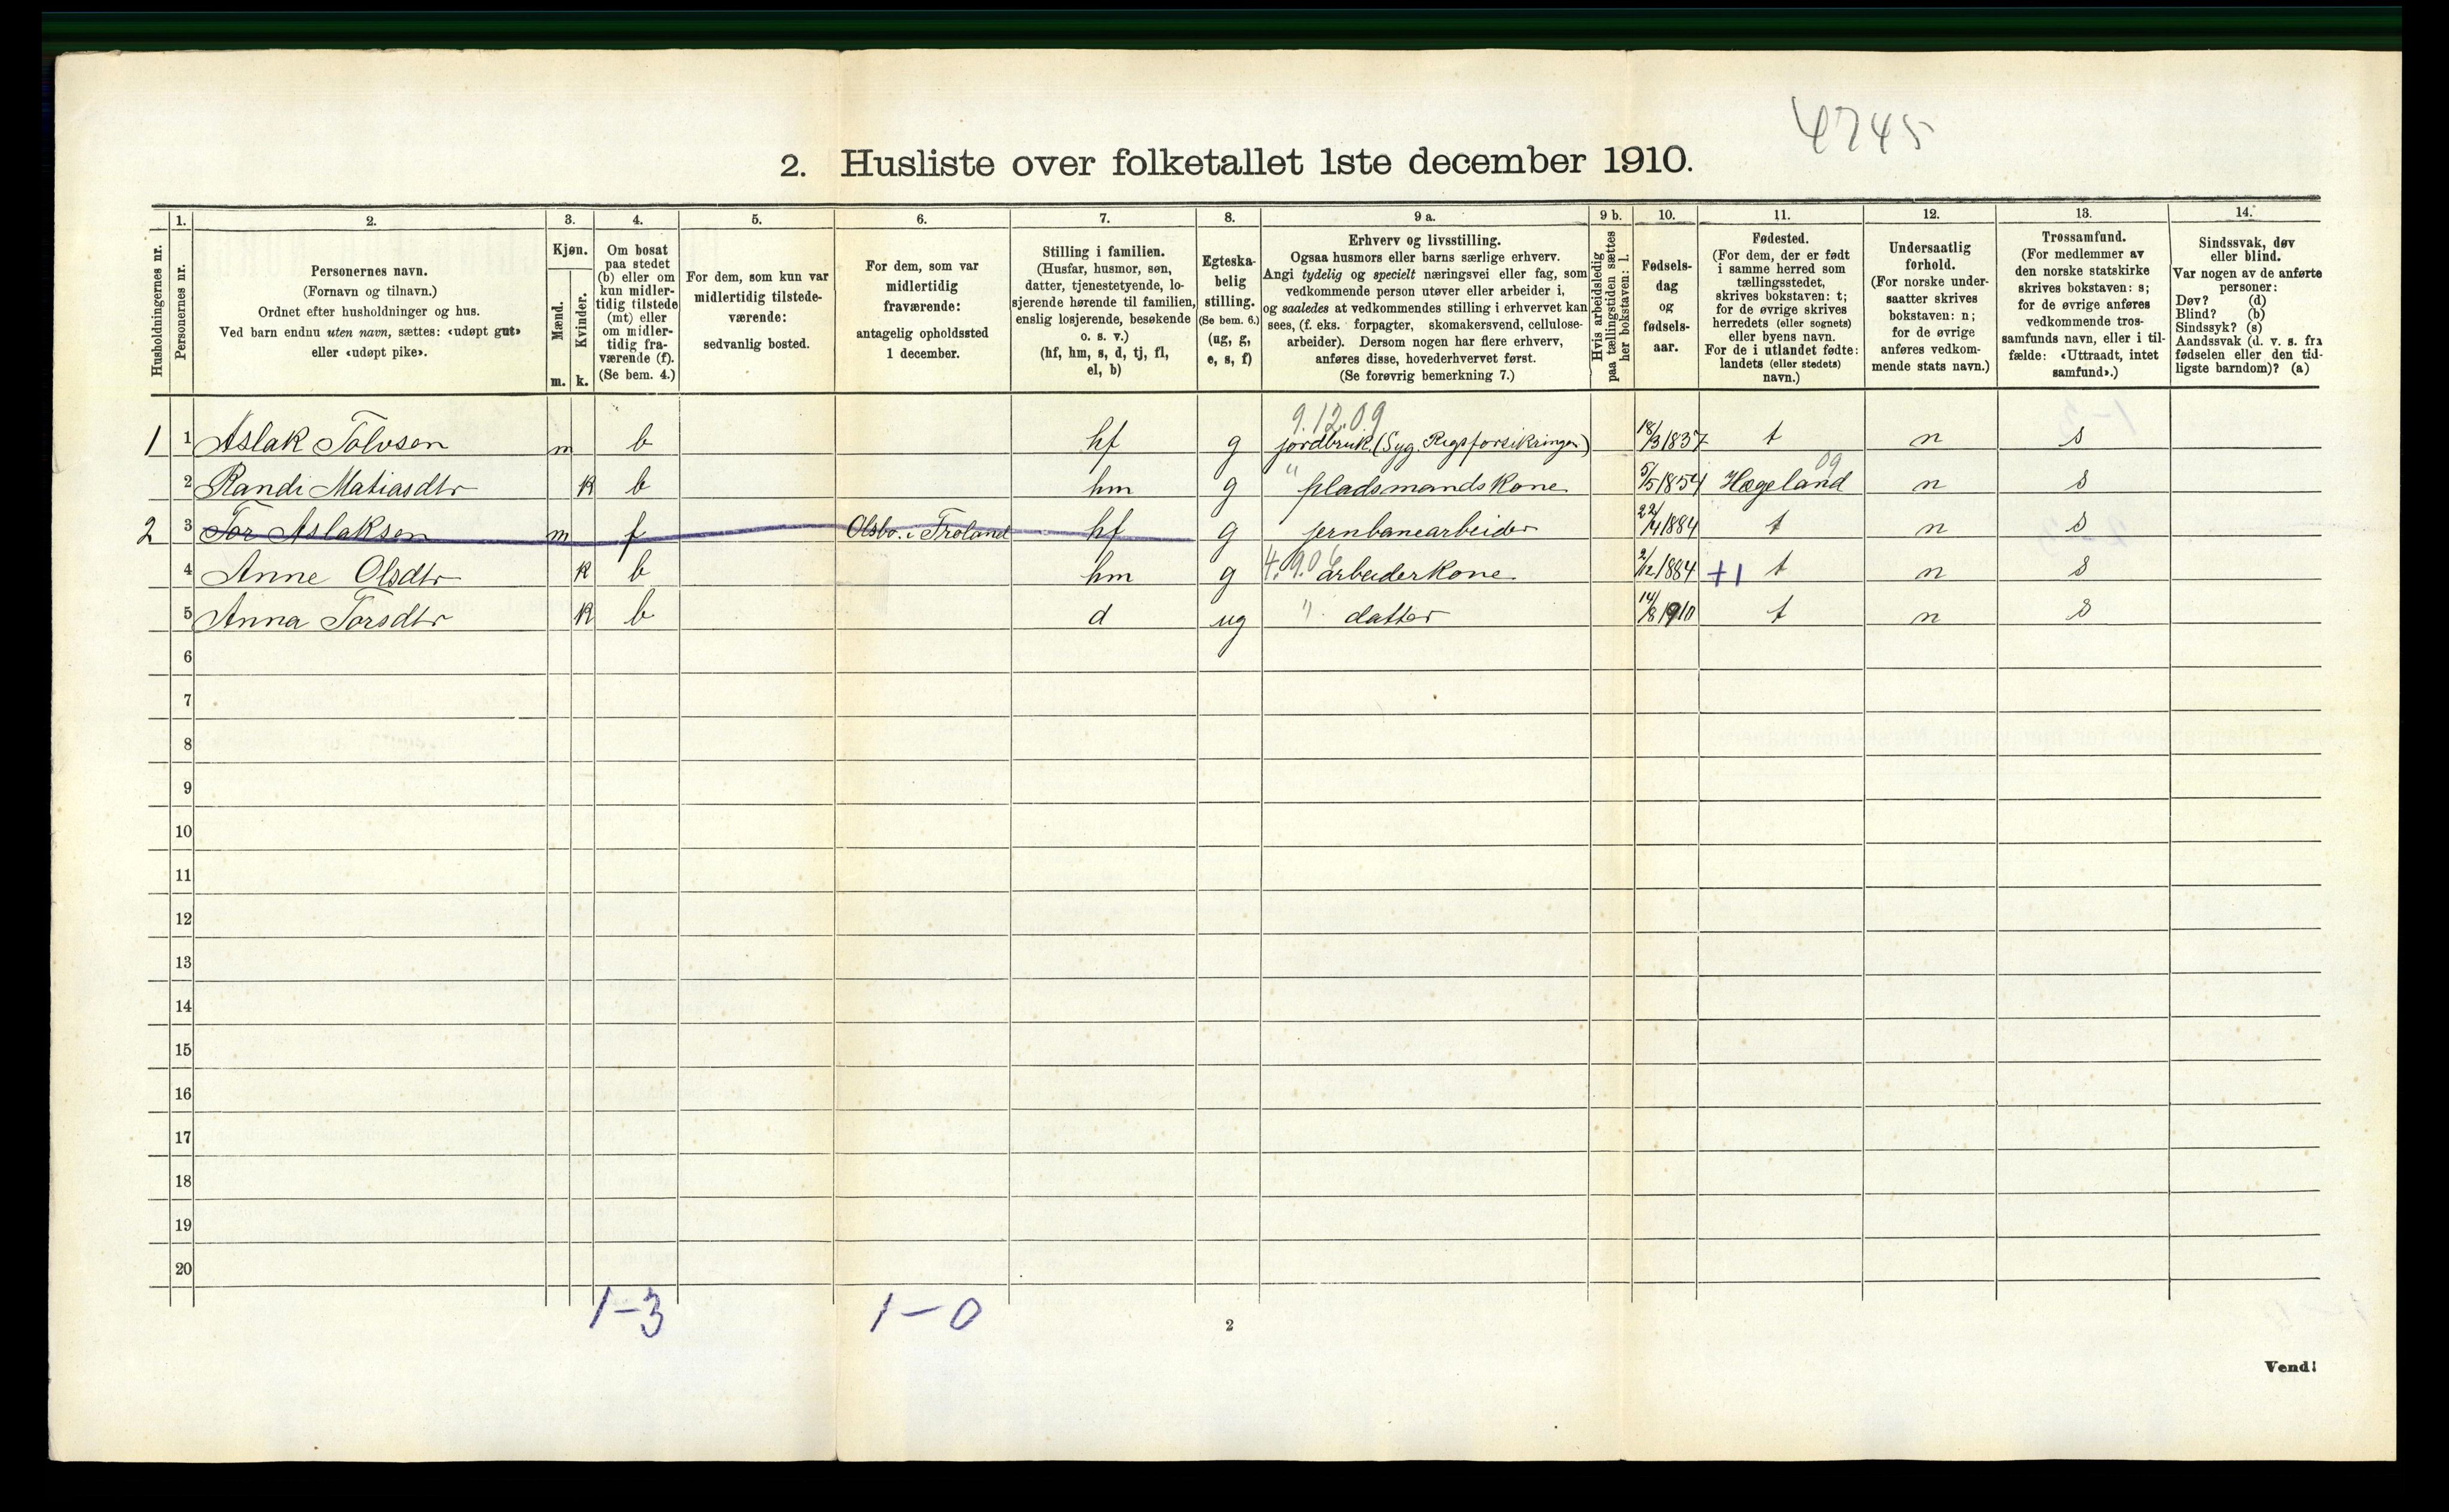 4745
2. Husliste over folketallet 1ste december 1910.
Husholdningernes nr.
1.
Personernes nr.
2.
Personernes navn.
(Fornavn og tilnavn.)
Ordnet efter husholdninger og hus.
Ved barn endnu uten navn, sættes: «udøpt gut»
eller «udøpt pike».
3.
Kjøn.
Mænd.
Kvinder.
m. k.
4.
Om bosat
paa stedet
(b) eller om
kun midler-
tidig tilstede
(mt) eller
om midler-
tidig fra-
værende (f).
(Se bem. 4.)
5.
For dem, som kun var
midlertidig tilstede-
værende:
sedvanlig bosted.
6.
For dem, som var
midlertidig
fraværende:
antagelig opholdssted
1 december.
7.
Stilling i familien.
(Husfar, husmor, søn,
datter, tjenestetyende, lo-
sjerende hørende til familien,
enslig losjerende, besøkende
o. s. v.)
(hf, hm, s, d, tj, fl,
el, b)
8.
Egteska-
belig
stilling.
(Se bem. 6.)
(ug, g,
e, s, f)
9 a.
Erhverv og livsstilling.
Ogsaa husmors eller barns særlige erhverv.
Angi tydelig og specielt næringsvei eller fag, som
vedkommende person utøver eller arbeider i,
og saaledes at vedkommendes stilling i erhvervet kan
sees, (f. eks. forpagter, skomakersvend, cellulose-
arbeider). Dersom nogen har flere erhverv,
anføres disse, hovederhvervet først.
(Se forøvrig bemerkning 7.)
9 b.
Hvis arbeidsledig
paa tællingstiden sættes
her bokstaven: l.
10.
Fødsels-
dag
og
fødsels-
aar.
11.
Fødested.
(For dem, der er født
i samme herred som
tællingsstedet,
skrives bokstaven: t;
for de øvrige skrives
herredets (eller sognets)
eller byens navn.
For de i utlandet fødte:
landets (eller stedets)
navn.)
12.
Undersaatlig
forhold.
(For norske under-
saatter skrives
bokstaven: n;
for de øvrige
anføres vedkom-
mende stats navn.)
13.
Trossamfund.
(For medlemmer av
den norske statskirke
skrives bokstaven: s;
for de øvrige anføres
vedkommende tros-
samfunds navn, eller i til-
fælde: «Uttraadt, intet
samfund».)
14.
Sindssvak, døv
eller blind.
Var nogen av de anførte
personer:
Døv? (d)
Blind? (b)
Sindssyk? (s)
Aandssvak (d. v. s. fra
fødselen eller den tid-
ligste barndom)? (a)
9.12.09
1 1 Aslak Tolvsen m b hf g jordbruk (Syg. Rigsforsikringen) 18/3 1837 t n s
09
2 Randi Matiasdtr k b hm g " pladsmandskone 5/5 1854 Hægeland n s
2 3 Tor Aslaksen m f Olsbo i Froland hf g jernbanearbeider 22/4 1884 t n s
4 Anne Olsdtr k b hm g 4.9.06 arbeiderkone 2/12 1884 +1 t n s
5 Anna Torsdtr k b d ug " datter 14/8 1910 t n s
6
7
8
9
10
11
12
13
14
15
16
17
18
19
20
1-3 1-0
2
Vend!